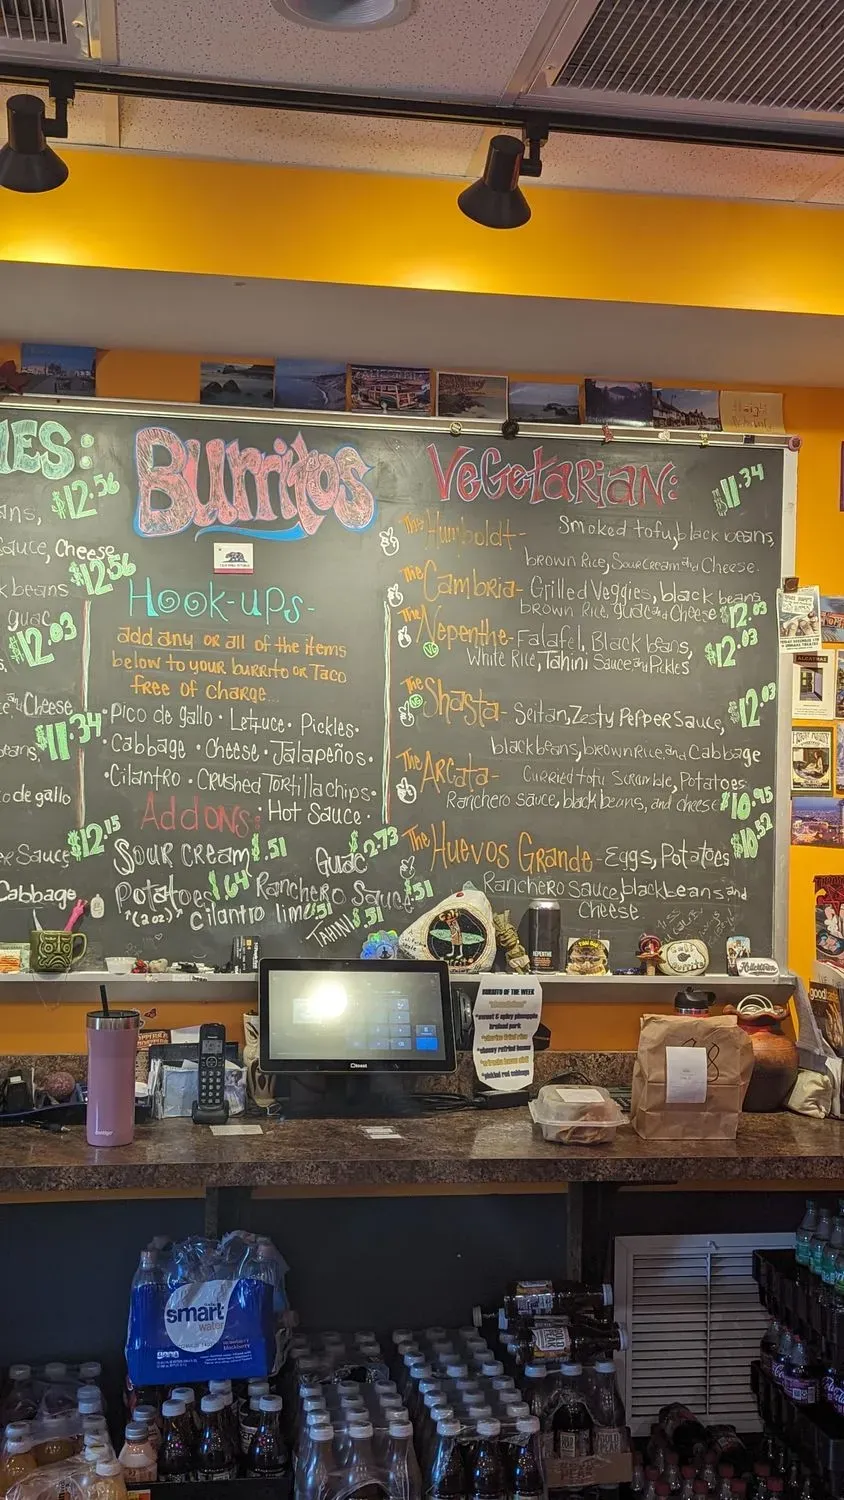 IES:
$12.56
ans,
sauce, Cheese
$12.56
k beans
guac
$12.03
and Cheese
$11.34
beans,
co de gallo
$12.15
er Sauce
Cabbage
Burritos
CALIFORNIA REPUBLIC
Hook-ups-
add any or all of the items
below to your burrito or Taco
free of charge...
•Pico de gallo • Lettuce • Pickles•
•Cabbage • Cheese • Jalapeños•
•Cilantro • Crushed Tortilla chips•
• Hot Sauce •
Addons:
Sour cream $.51
Guac $2.73
Potatoes $.64
Ranchero Sauce $.51
"(2oz)" cilantro lime $.51
TAHINI $.51
VEGETARIAN:
$11.34
The Humboldt- Smoked tofu, black beans,
brown Rice, Sour Cream and Cheese.
The Cambria- Grilled Veggies, black beans,
brown Rice, guac and Cheese $12.03
The Nepenthe- Falafel, Black beans, $12.03
VG
White Rice, Tahini Sauce and Pickles
The Shasta- Seitan, Zesty Pepper Sauce, $12.03
VG
black beans, brown rice, and Cabbage
The Arcata- Curried tofu Scramble, Potatoes,
Ranchero sauce, black beans, and cheese $10.95
The Huevos Grande- Eggs, Potatoes $10.52
Ranchero Sauce, black beans and
Cheese
NEPENTHE
ALCATRAZ
BURRITO OF THE WEEK
*sweet & spicy pineapple
braised pork
*pickled red cabbage
toast
contigo
smart
water
strawberry
blackberry